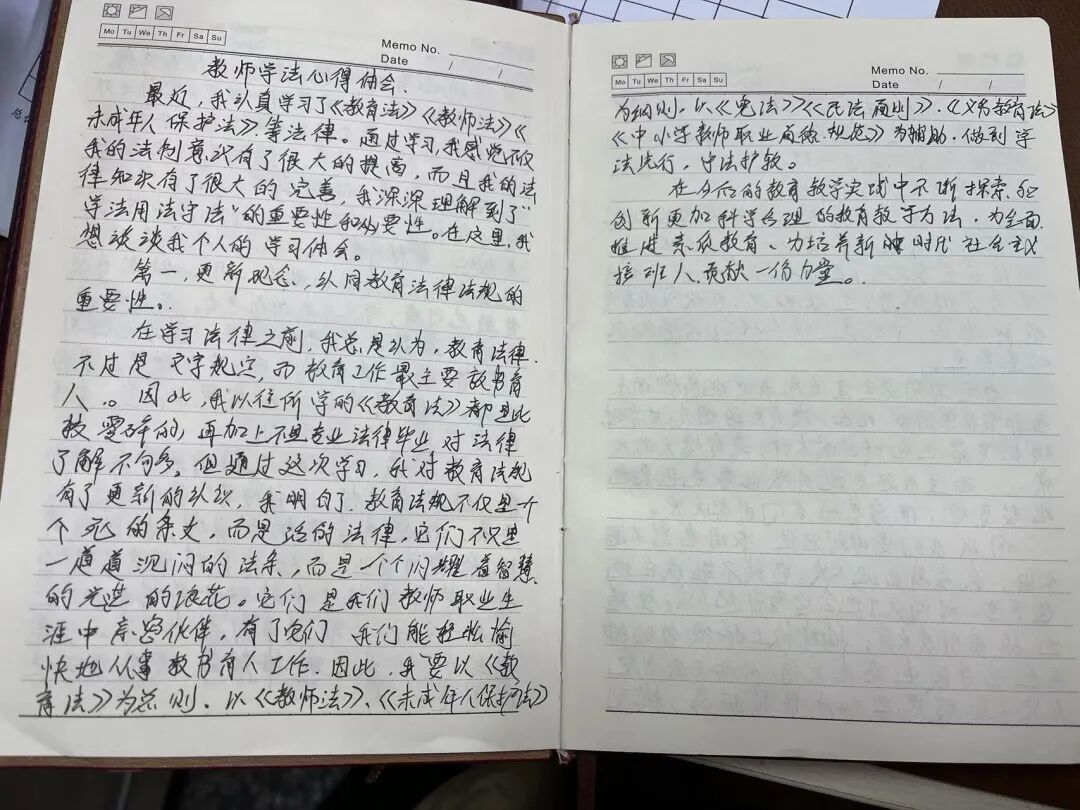 Mo Tu We Th Fr Sa Su
Memo No.
Date / /
教师学法心得体会.
最近,我认真学习了《教育法》《教师法》《
未成年人保护法》等法律。通过学习,我感觉不仅
我的法制意识有了很大的提高,而且我的法
律知识有了很大的完善,我深深理解到了"
学法用法守法"的重要性和必要性。在这里,我
想谈谈我个人的学习体会。
第一,更新观念,认同教育法律法规的
重要性。
在学习法律之前,我总是认为,教育法律
不过是文字规定,而教育工作最主要教书育
人。因此,我以往所学的《教育法》都是比
较零碎的,再加上不是专业法律毕业对法律
了解不够多。但通过这次学习,我对教育法规
有了更新的认识,我明白了.教育法规不仅是一个
个死的条文,而是活的法律,它们不只是
一道道沉闷的法条,而是一个个闪耀着智慧
的光芒的浪花。它们是我们教师职业生
涯中亲密伙伴,有了它们 我们能轻松愉
快地从事教书育人工作.因此,我要以《教
育法》为总则.以《教师法》、《未成年人保护法》
Mo Tu We Th Fr Sa Su
Memo No.
Date / /
为细则.以《宪法》《民法通则》、《义务教育法》
《中小学教师职业道德规范》为辅助.做到学
法先行,守法护教。
在今后的教育教学实践中不断探索,和
创新更加科学合理的教育教学方法.为全面
推进素质教育、为培养新时代社会主义
接班人.贡献一份力量。